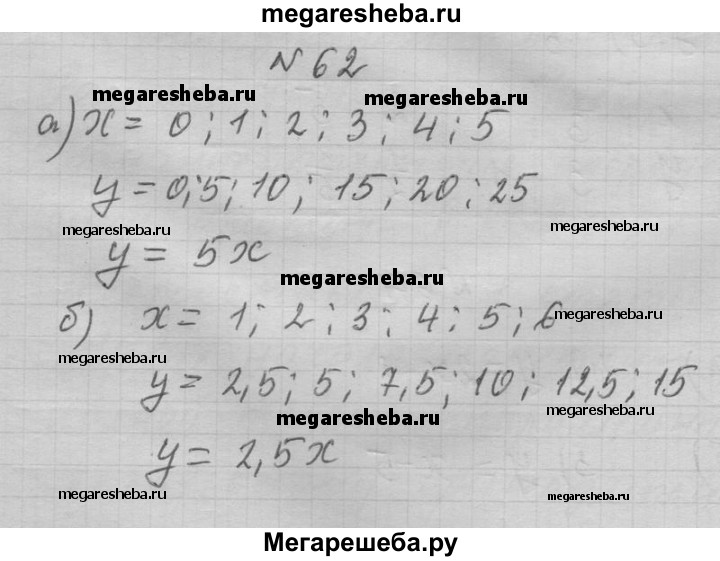 megaresheba.ru
№ 62
megaresheba.ru megaresheba.ru
а) x = 0; 1; 2; 3; 4; 5
y = 0; 5; 10; 15; 20; 25
megaresheba.ru megaresheba.ru
y = 5x
megaresheba.ru
б) x = 1; 2; 3; 4; 5; 6
megaresheba.ru
megaresheba.ru
y = 2,5; 5; 7,5; 10; 12,5; 15
megaresheba.ru
megaresheba.ru
y = 2,5x
megaresheba.ru megaresheba.ru
Мегарешеба.ру